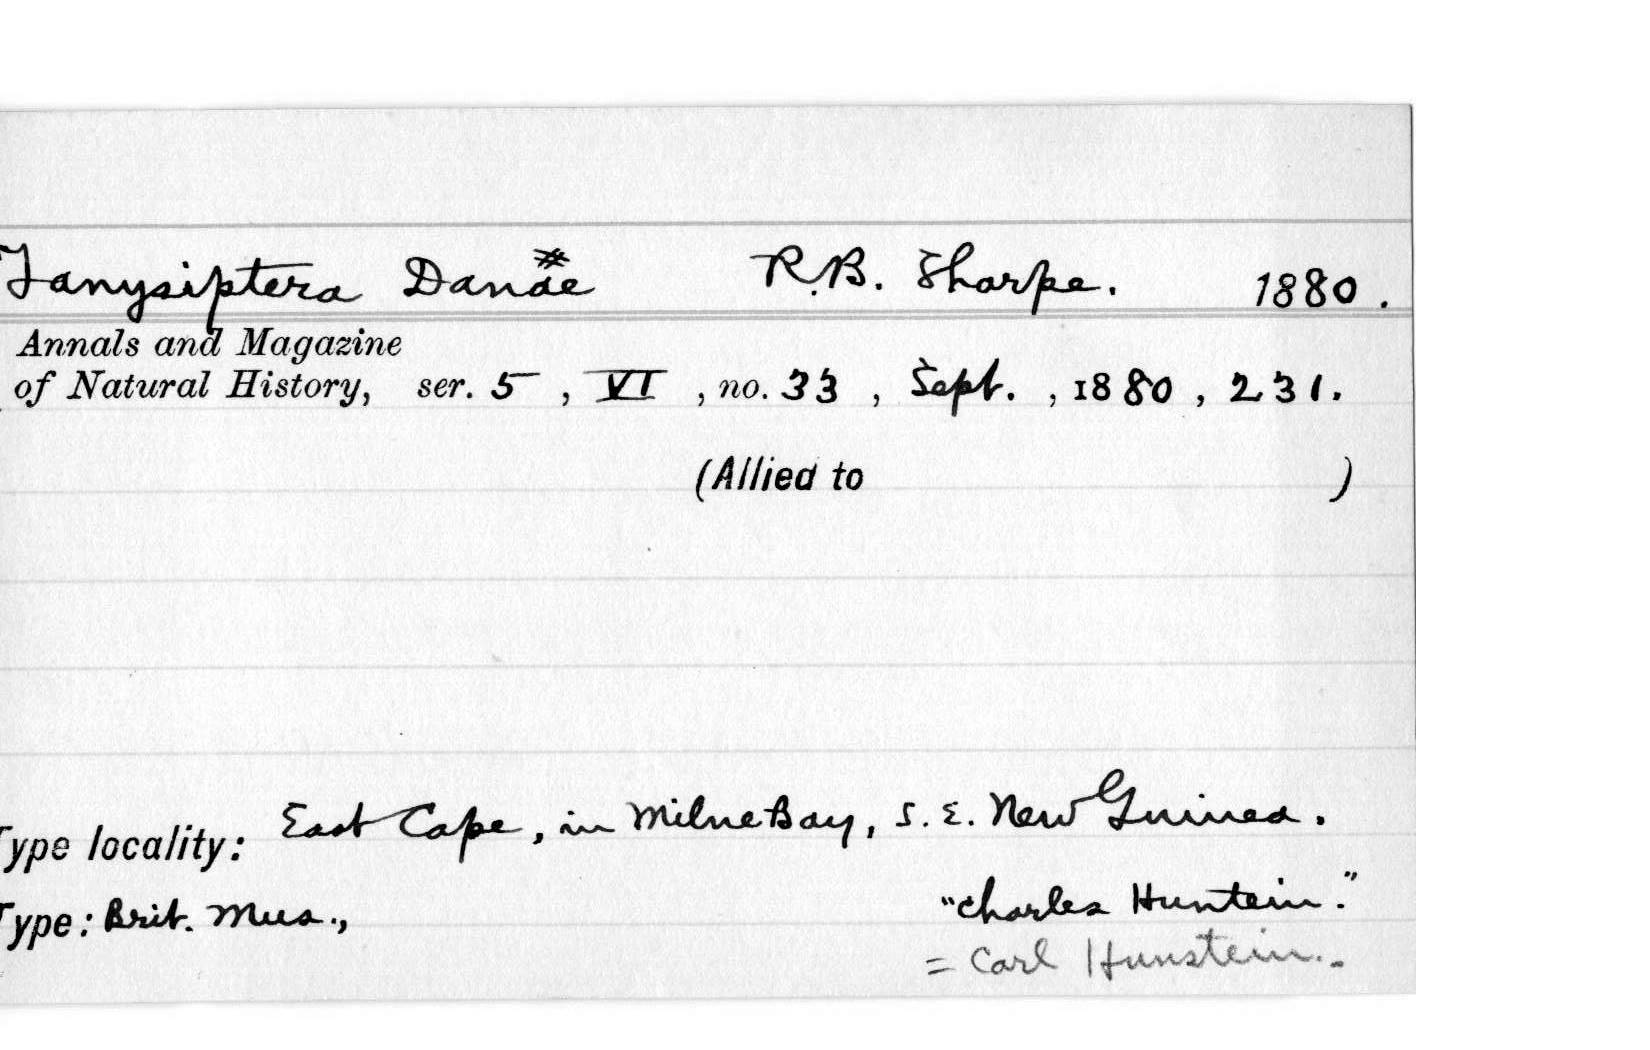 Tanysiptera Danaë R.B. Sharpe. 1880.
Annals and Magazine
of Natural History, ser. 5, VI, no. 33, Sept., 1880, 231.
(Allied to )
Type locality: East Cape, in Milne Bay, S.E. New Guinea.
Type: Brit. Mus., "Charles Huntein."
= Carl Hunstein.